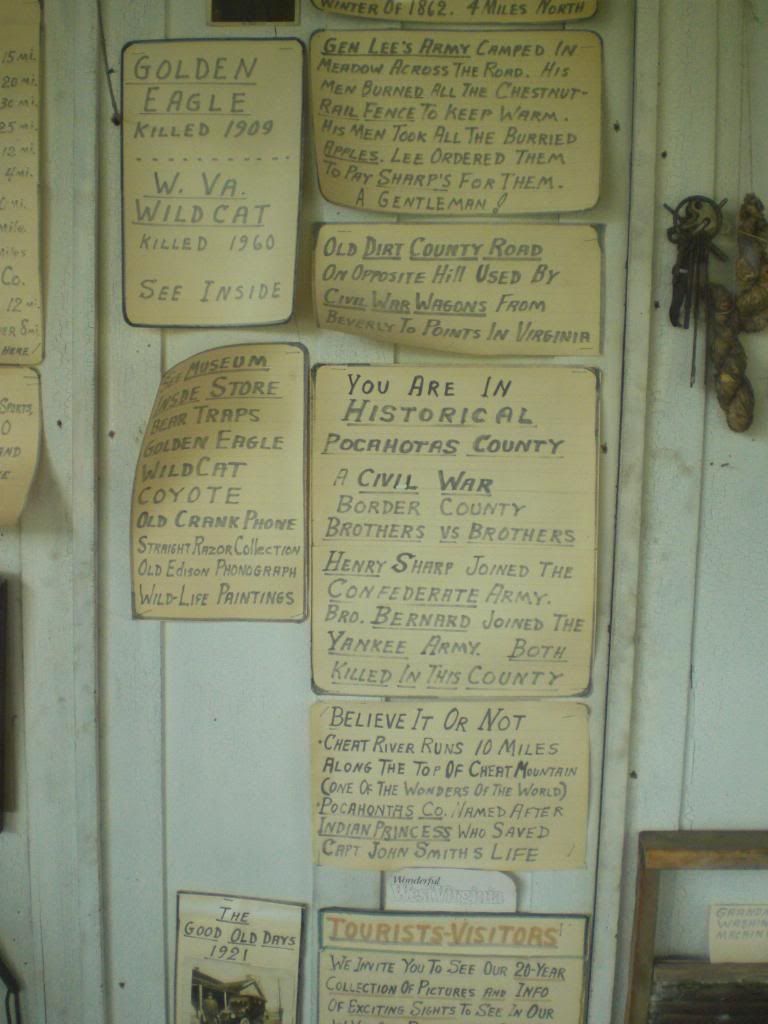 15 mi.
20 mi.
30 mi.
25 mi.
12 mi.
4 mi.
mile.
miles
Co.
12 mi.
HERE!
SPORTS,
AND
WINTER OF 1862. 4 MILES NORTH
GOLDEN
EAGLE
KILLED 1909
W. VA.
WILDCAT
KILLED 1960
SEE INSIDE
GEN LEE'S ARMY CAMPED IN
MEADOW ACROSS THE ROAD. HIS
MEN BURNED ALL THE CHESTNUT-
RAIL FENCE TO KEEP WARM.
HIS MEN TOOK ALL THE BURRIED
APPLES. LEE ORDERED THEM
TO PAY SHARP'S FOR THEM.
A GENTLEMAN!
OLD DIRT COUNTY ROAD
ON OPPOSITE HILL USED BY
CIVIL WAR WAGONS FROM
BEVERLY TO POINTS IN VIRGINIA
SEE MUSEUM
INSIDE STORE
BEAR TRAPS
GOLDEN EAGLE
WILDCAT
COYOTE
OLD CRANK PHONE
STRAIGHT RAZOR COLLECTION
OLD EDISON PHONOGRAPH
WILD-LIFE PAINTINGS
YOU ARE IN
HISTORICAL
POCAHOTAS COUNTY
A CIVIL WAR
BORDER COUNTY
BROTHERS VS BROTHERS
HENRY SHARP JOINED THE
CONFEDERATE ARMY.
BRO. BERNARD JOINED THE
YANKEE ARMY. BOTH
KILLED IN THIS COUNTY
BELIEVE IT OR NOT
·CHEAT RIVER RUNS 10 MILES
ALONG THE TOP OF CHEAT MOUNTAIN
(ONE OF THE WONDERS OF THE WORLD)
·POCAHONTAS CO. NAMED AFTER
INDIAN PRINCESS WHO SAVED
CAPT JOHN SMITHS LIFE
Wonderful
West Virginia
THE
GOOD OLD DAYS
1921
TOURISTS-VISITORS
WE INVITE YOU TO SEE OUR 20-YEAR
COLLECTION OF PICTURES AND INFO
OF EXCITING SIGHTS TO SEE IN OUR